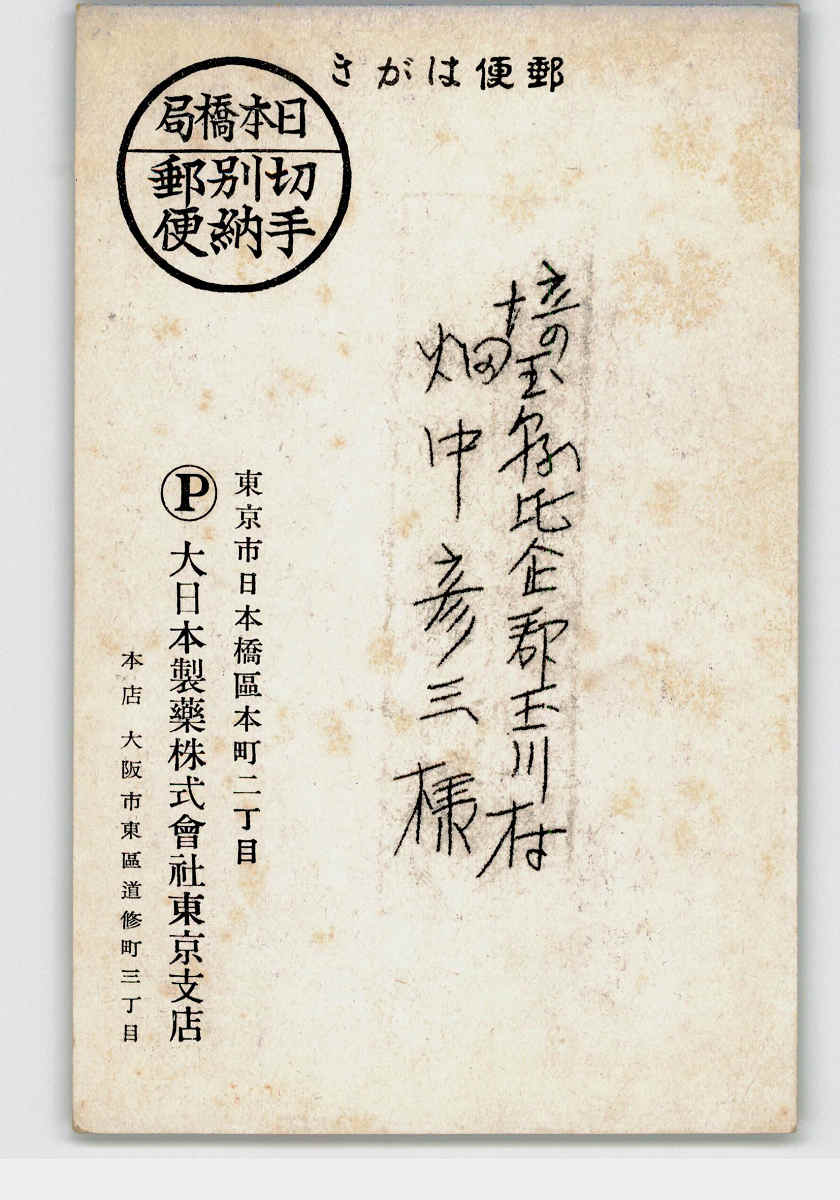 郵便はがき
日本橋局
切手
別納
郵便
埼玉県比企郡玉川村
畑中彦三様
東京市日本橋區本町二丁目
P 大日本製藥株式會社東京支店
本店 大阪市東區道修町三丁目